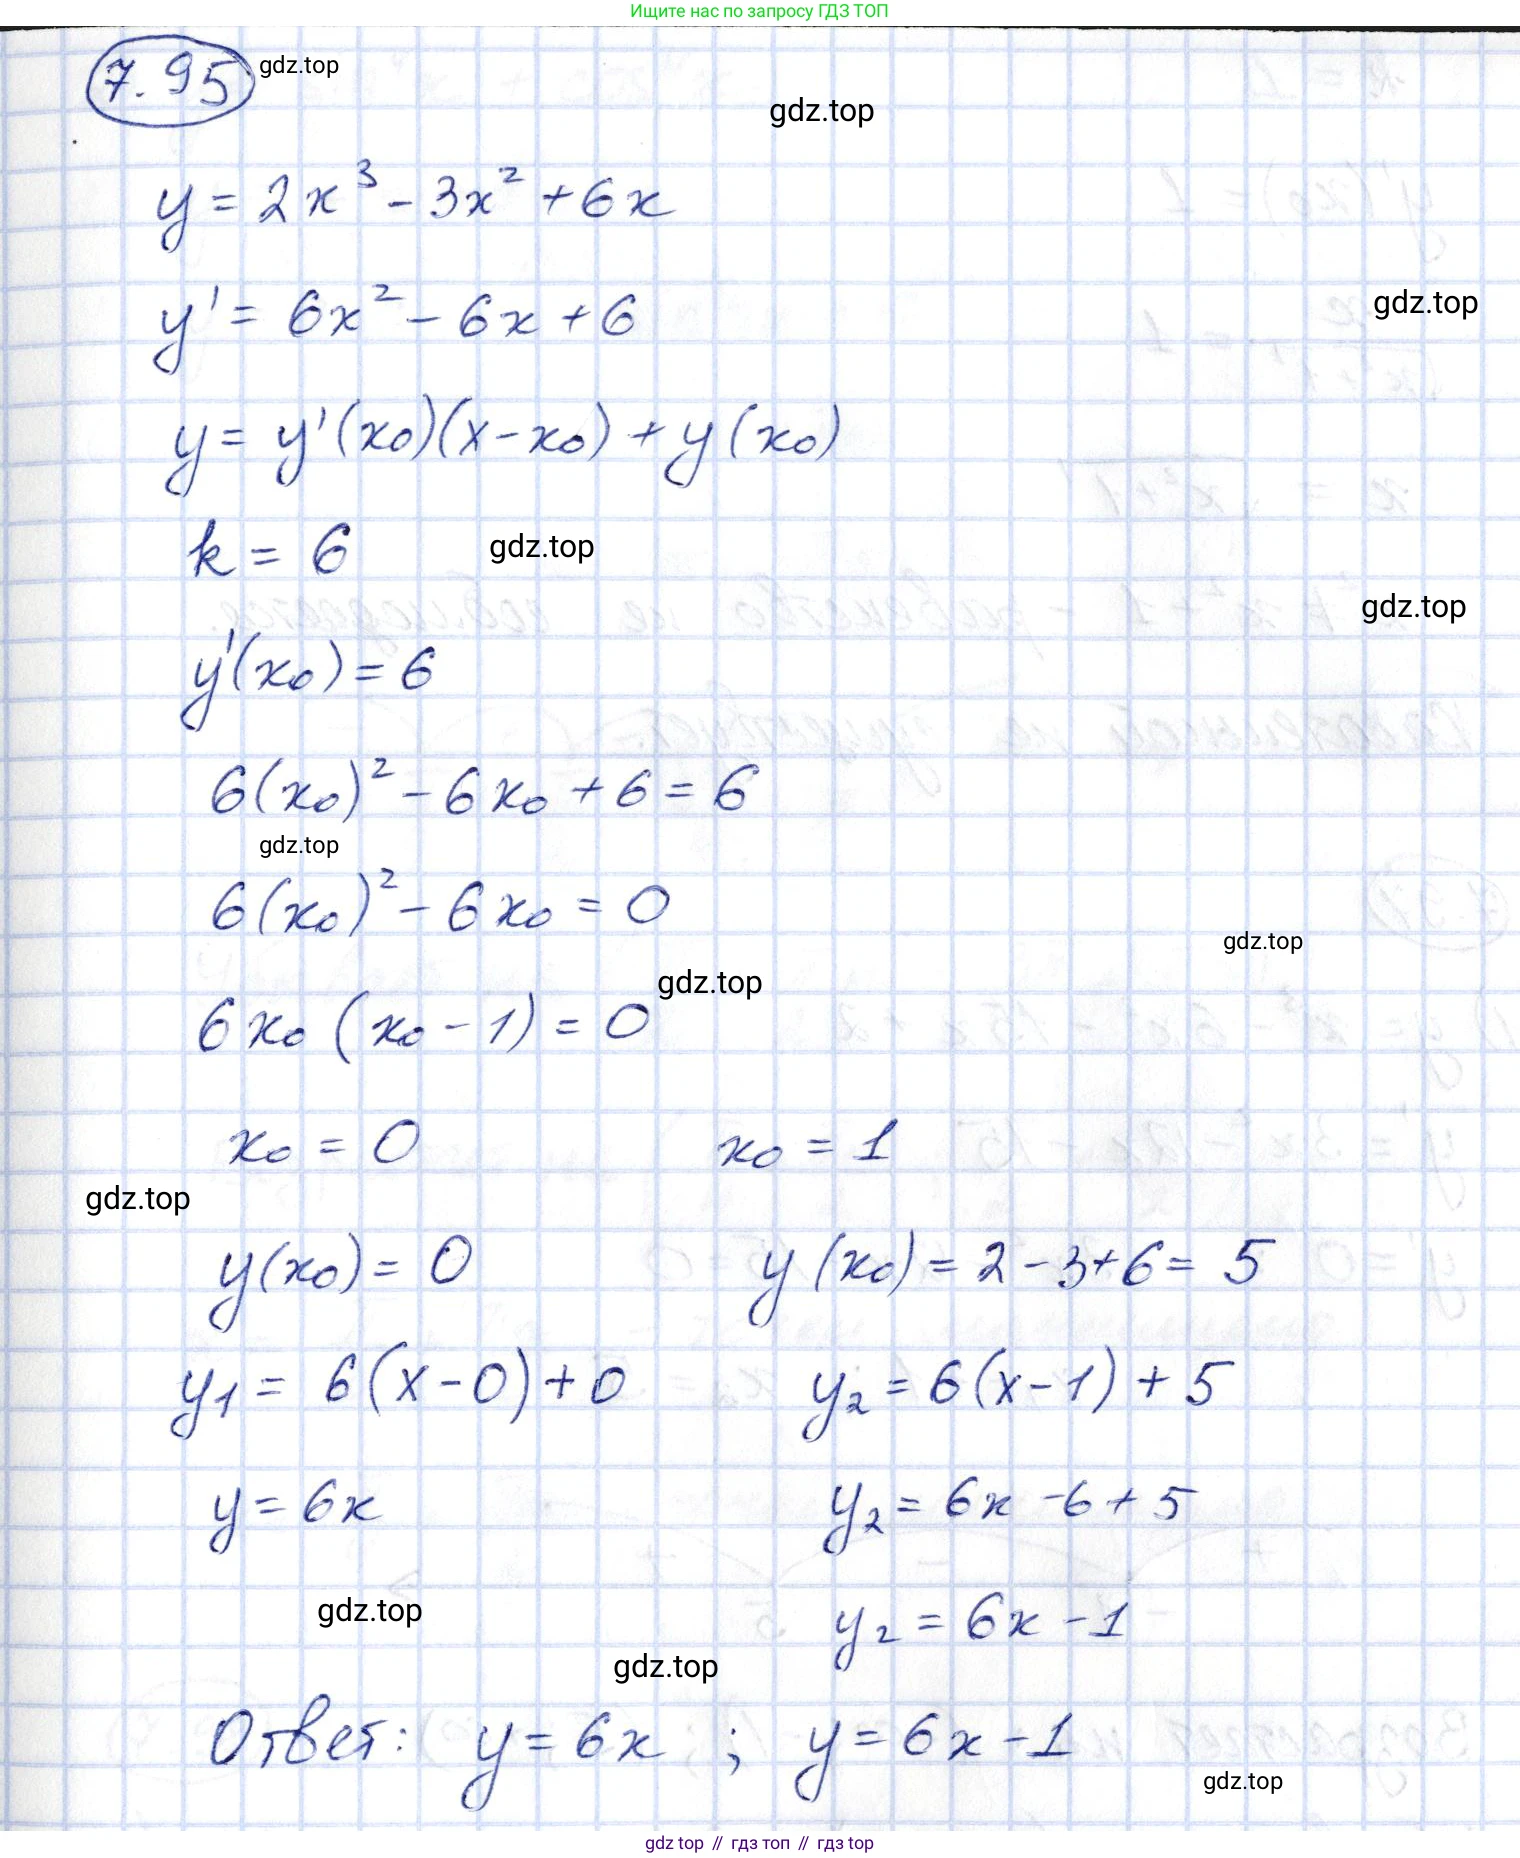 Ищите нас по запросу ГДЗ ТОП
7.95 gdz.top
gdz.top
y = 2x³ - 3x² + 6x
y' = 6x² - 6x + 6
gdz.top
y = y'(x₀)(x - x₀) + y(x₀)
k = 6 gdz.top
gdz.top
y'(x₀) = 6
6(x₀)² - 6x₀ + 6 = 6
gdz.top
6(x₀)² - 6x₀ = 0
gdz.top
gdz.top
6x₀ (x₀ - 1) = 0
x₀ = 0 x₀ = 1
gdz.top
y(x₀) = 0 y(x₀) = 2 - 3 + 6 = 5
y₁ = 6(x - 0) + 0 y₂ = 6(x - 1) + 5
y = 6x y₂ = 6x - 6 + 5
gdz.top y₂ = 6x - 1
gdz.top
Ответ: y = 6x ; y = 6x - 1
gdz.top
gdz top // гдз топ // гдз top